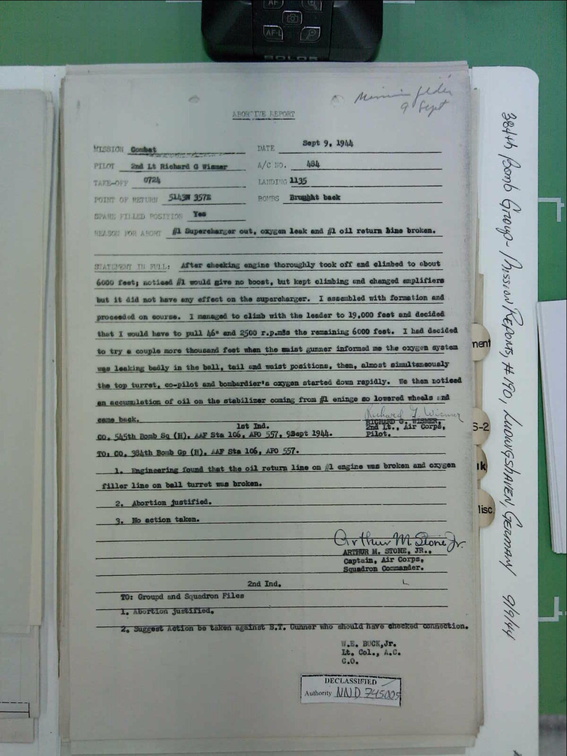 AF
AF-L
Mannheim
9 Sept
ABORTIVE REPORT
MISSION Combat DATE Sept 9, 1944
PILOT 2nd Lt Richard G Wismer A/C NO. 484
TAKE-OFF 0724 LANDING 1135
POINT OF RETURN 5143N 357E BOMBS Brought back
SPARE FILLED POSITION Yes
REASON FOR ABORT #1 Supercharger out, oxygen leak and #1 oil return line broken.
STATEMENT IN FULL: After checking engine thoroughly took off and climbed to about
6000 feet; noticed #1 would give no boost, but kept climbing and changed amplifiers
but it did not have any effect on the supercharger. I assembled with formation and
proceeded on course. I managed to climb with the leader to 19,000 feet and decided
that I would have to pull 46" and 2500 r.p.m§s the remaining 6000 feet. I had decided
to try a couple more thousand feet when the waist gunner informed me the oxygen system
was leaking badly in the ball, tail and waist positions, then, almost simultaneously
the top turret, co-pilot and bombardier's oxygen started down rapidly. We then noticed
an accumulation of oil on the stabilizer coming from #1 enings so lowered wheels and
came back.
Richard G. Wismer
RICHARD G. WISMER,
2nd Lt., Air Corps,
Pilot.
1st Ind.
CO, 545th Bomb Sq (H), AAF Sta 106, APO 557, 9Sept 1944.
TO: CO, 384th Bomb Gp (H), AAF Sta 106, APO 557.
1. Engineering found that the oil return line on #1 engine was broken and oxygen
filler line on ball turret was broken.
2. Abortion justified.
3. No action taken.
Arthur M Stone Jr.
ARTHUR M. STONE, JR.,
Captain, Air Corps,
Squadron Commander.
2nd Ind.
TO: Groupd and Squadron Files
1. Abortion justified.
2. Suggest Action be taken against B.T. Gunner who should have checked connection.
W.E. BUCK,Jr.
Lt. Col., A.C.
C.O.
DECLASSIFIED
Authority NND 745005
384th Bomb Group- Mission Reports, #190, Ludwigshaven, Germany 9/9/44
ment
S-2
k
isc